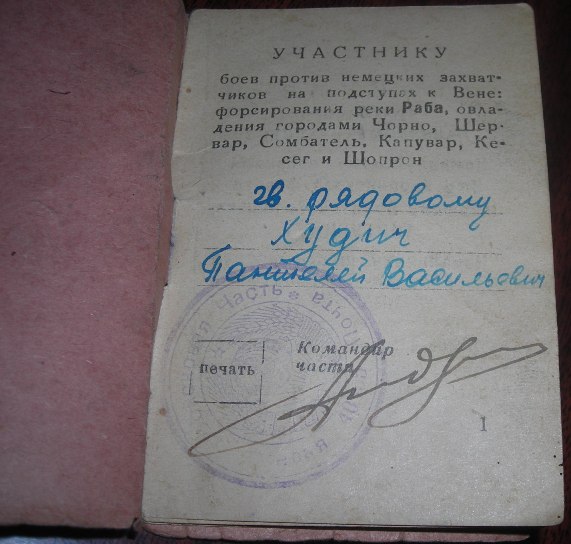 УЧАСТНИКУ
боев против немецких захват-
чиков на подступах к Вене:
форсирования реки Раба, овла-
дения городами Чорно, Шер-
вар, Сомбатель, Капувар, Ке-
сег и Шопрон
гв. рядовому
Худич
Пантелей Васильович
Часть * почта
печать
Командир
части
1